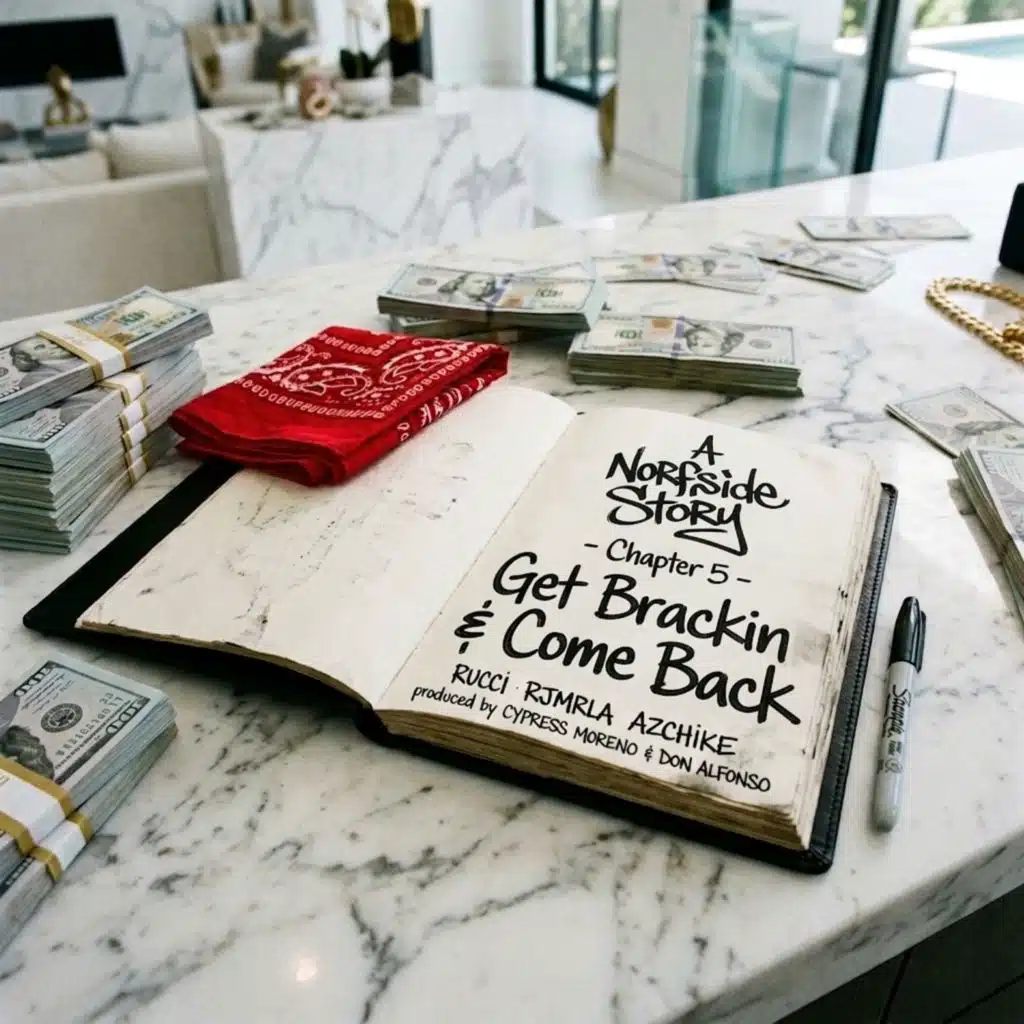 A
Norfside
Story
- Chapter 5 -
Get Brackin
& Come Back
RUCCI · RJMRLA AZCHIKE
produced by CYPRESS MORENO & DON ALFONSO